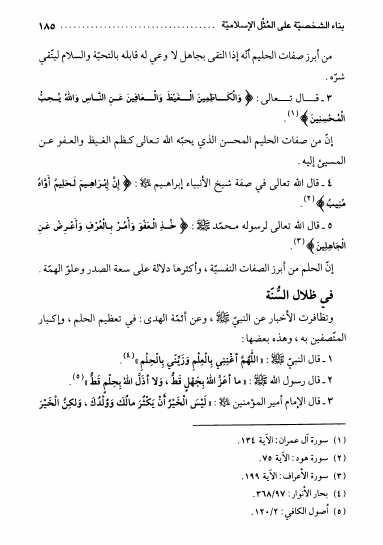 بناء الشخصيّة على المُثُل الإسلاميّة .................................... ١٨٥
من أبرز صفات الحليم أنّه إذا التقى بجاهل لا وعي له قابله بالتحيّة والسلام ليتّقي
شرّه .
٣ ـ قـــال تــعــالى : ﴿ وَالْكَــاظِمِينَ الْــغَيْظَ وَالْــعَافِينَ عَــنِ النَّاسِ وَاللهُ يُـحِبُّ
الْمُحْسِنِينَ ﴾ (١).
إنّ من صفات الحليم المحسن الذي يحبّه الله تـعالى كـظم الغـيظ والعـفو عـن
المسيئ إليه .
٤ ـ قـال الله تعالى في صفة شيخ الأنبياء إبراهـيم ﷺ : ﴿ إِنَّ إِبْـرَاهِـيمَ لَـحَلِيمٌ أَوَّاهٌ
مُنِيبٌ ﴾ (٢).
٥ ـ قال الله تعالى لرسوله محمّد ﷺ : ﴿ خُـذِ الْـعَفْوَ وَأْمُـرْ بِـالْعُرْفِ وَأَعْرِضْ عَـنِ
الْجَاهِلِينَ ﴾ (٣).
إنّ الحلم من أبرز الصفات النفسيّة ، وأكثرها دلالة على سعة الصدر وعلوّ الهمّة .
في ظلال السُّنّة
وتظافرت الأخبار عن النبيّ ﷺ ، وعن أئمّة الهدى : في تعظيم الحلم ، وإكـبار
المتّصفين به ، وهذه بعضها :
١ ـ قال النبيّ ﷺ : « اللّٰهُمَّ أَغْنِنِي بِالْعِلْمِ وَزَيِّنِّي بِالْحِلْمِ » (٤).
٢ ـ قال رسول الله ﷺ : « ما أَعَزَّ اللهُ بِجَهْلٍ قَطُّ ، وَلا أَذَلَّ اللهُ بِحِلْمٍ قَطُّ » (٥).
٣ ـ قال الإمام أمير المؤمنين ﷺ : « لَيْسَ الْخَيْرُ أَنْ يَكْثُرَ مالُكَ وَوُلْدُكَ ، وَلٰكِنَّ الْخَيْرَ
(١) سورة آل عمران : الآية ١٣٤.
(٢) سورة هود : الآية ٧٥.
(٣) سورة الأعراف : الآية ١٩٩.
(٤) بحار الأنوار : ٣٦٨/٩٧.
(٥) أصول الكافي : ١٢٠/٢.